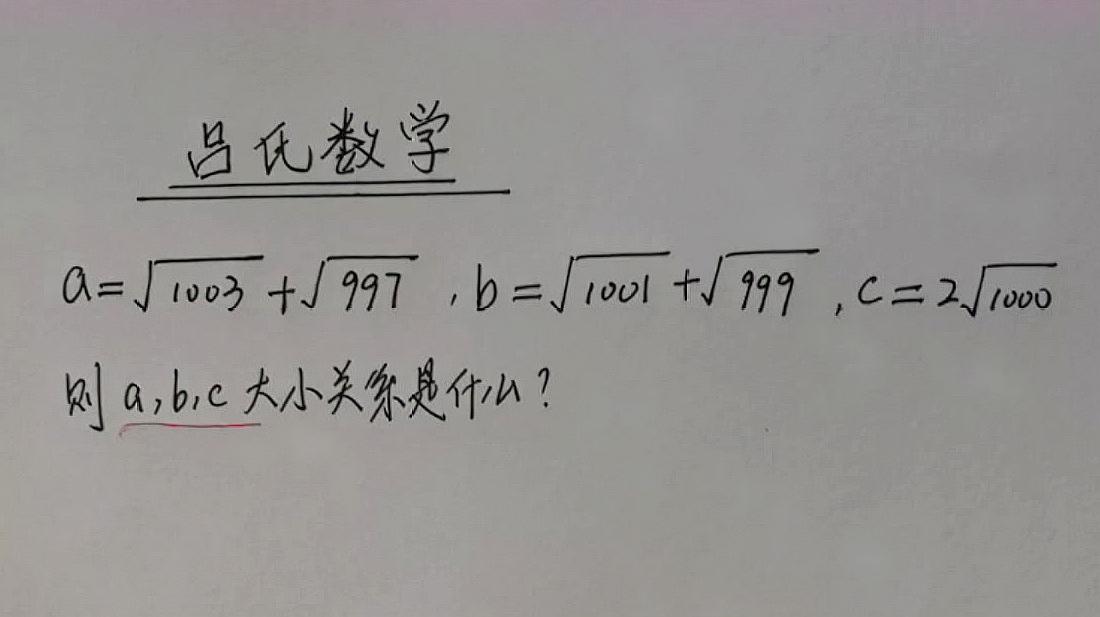 吕氏数学
a=√1003+√997,b=√1001+√999,c=2√1000
则a,b,c大小关系是什么?